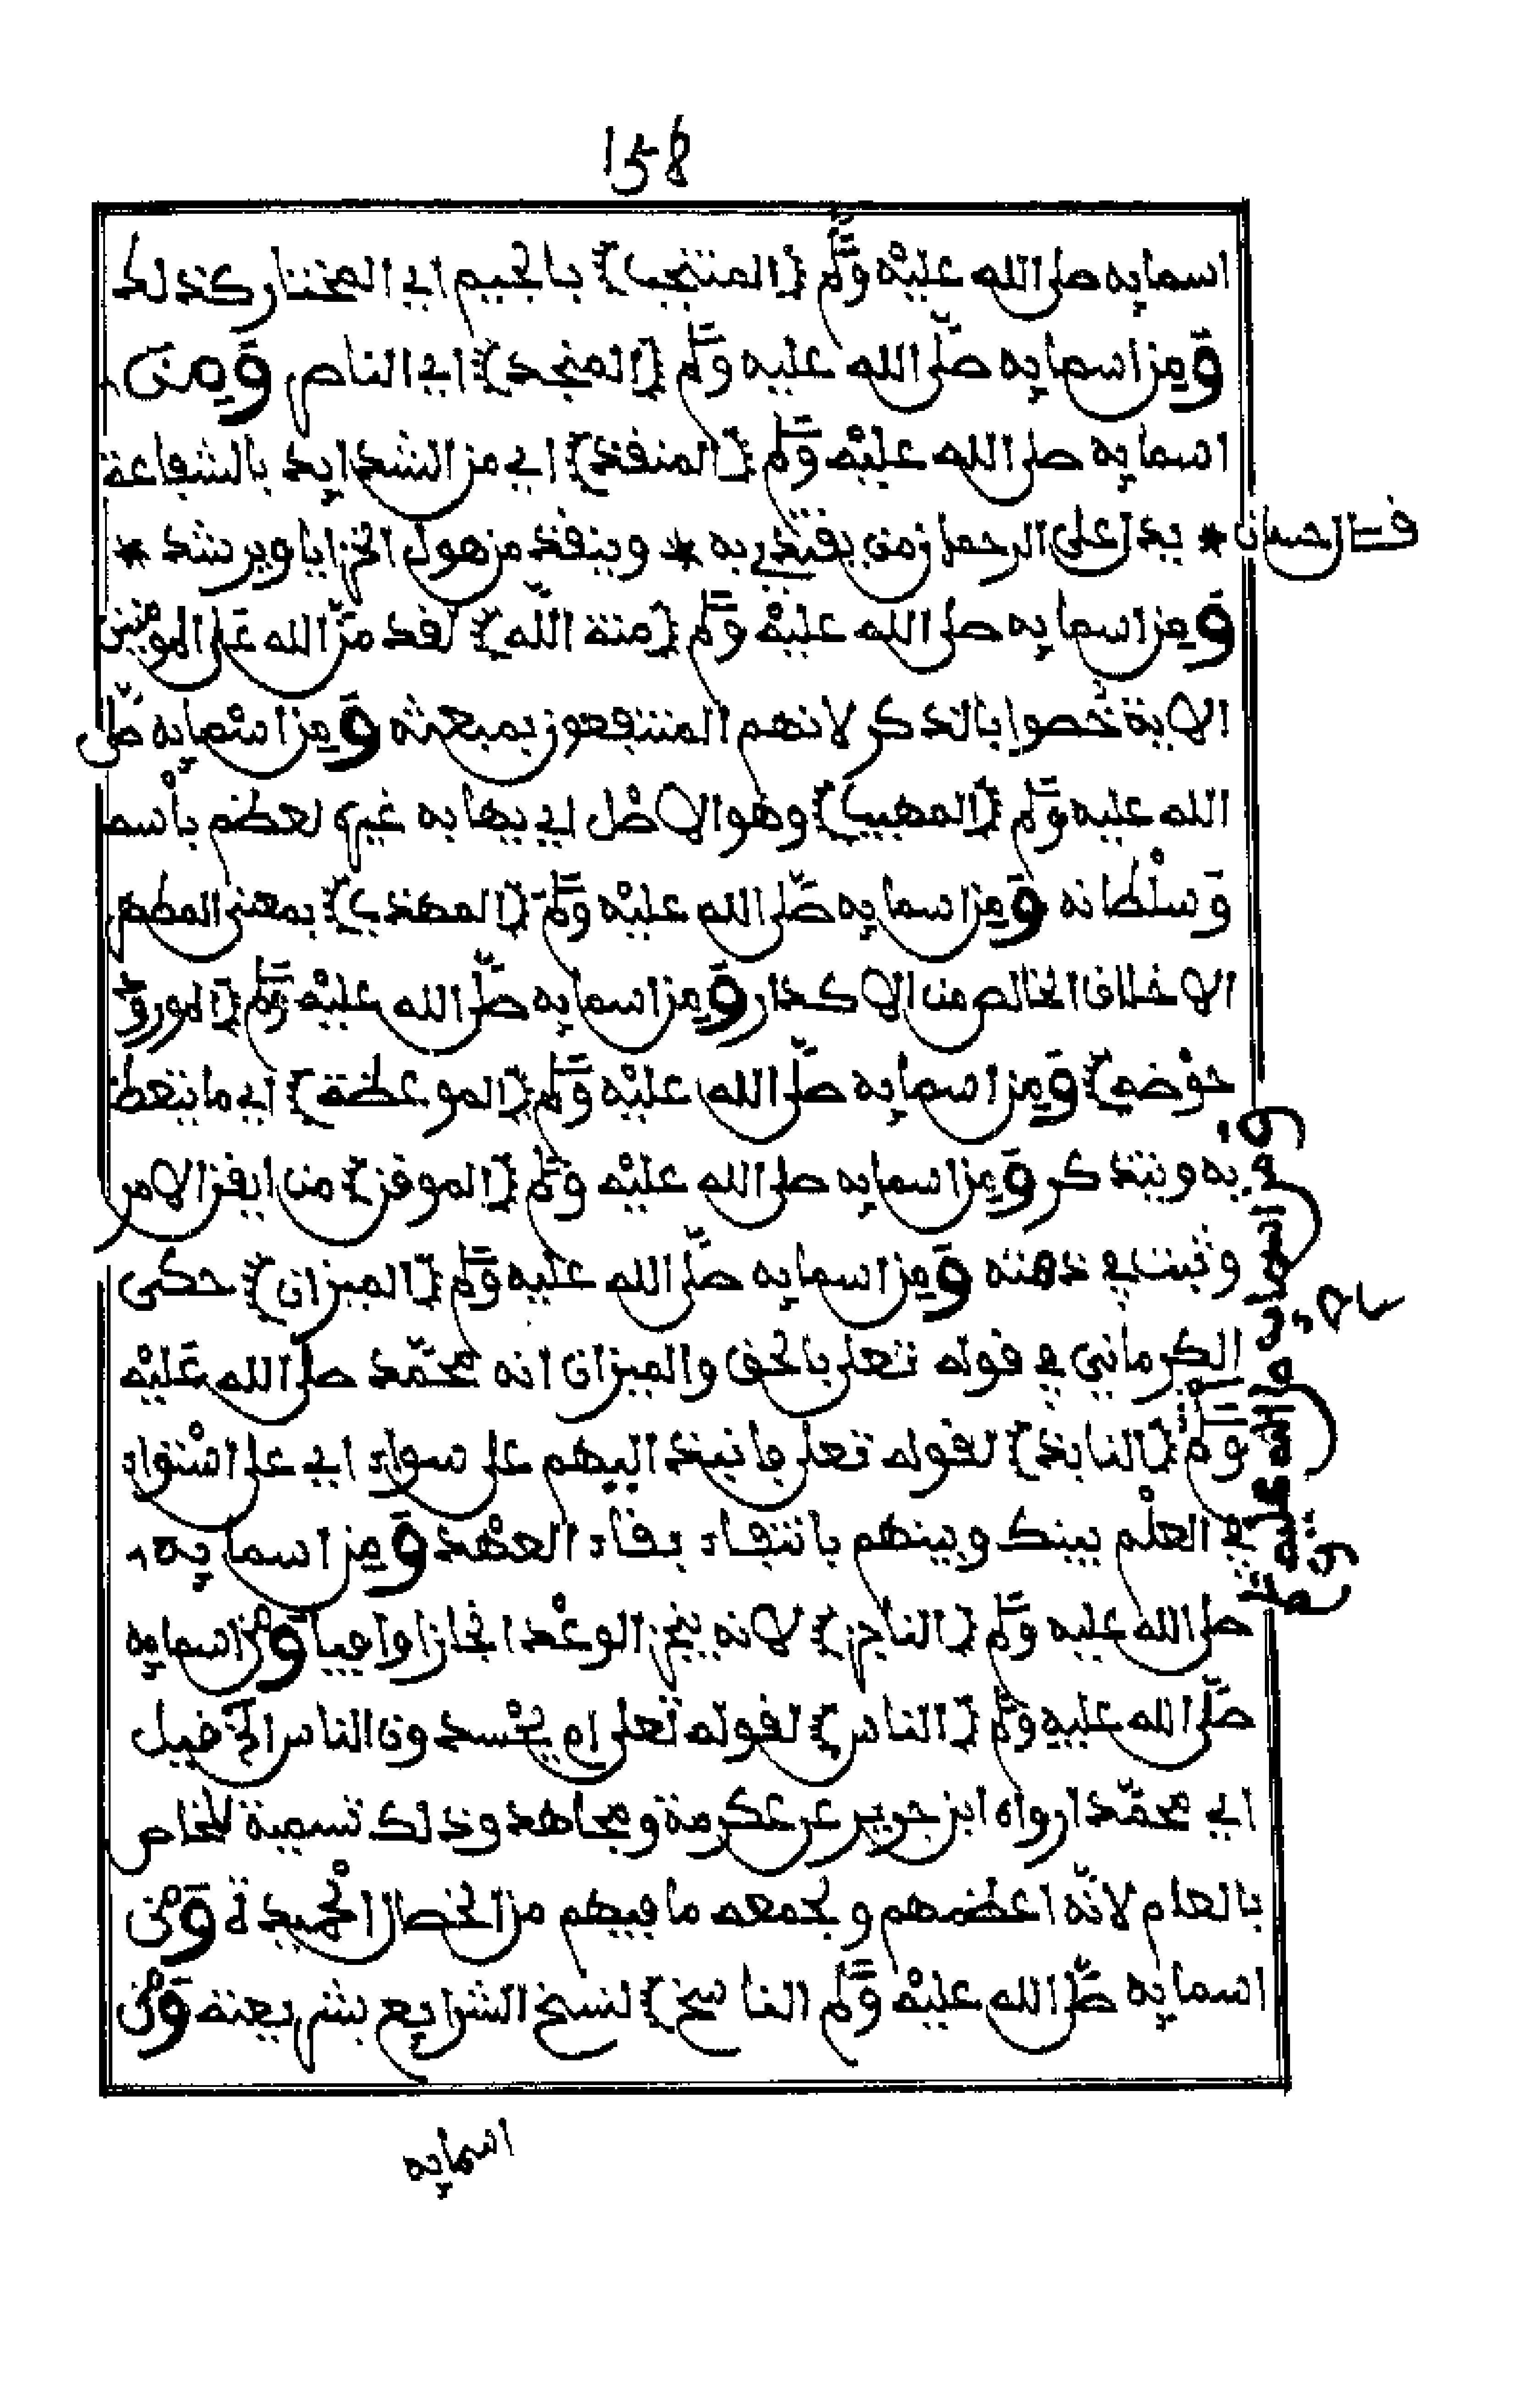 158
اسمايه صلى الله عليه وسلم {المنتجب} بالجيم اي المختار كذلك
ومن اسمايه صلى الله عليه وسلم {المنجد} اي الناصر ومن
اسمايه صلى الله عليه وسلم {المنقذ} اي من الشدايد بالشفاعة
قال حسان * يدل على الرحمان من يقتدي به * وينقذ من هول الخزايا ويرشد *
ومن اسمايه صلى الله عليه وسلم {منة الله} لقد من الله على المومنين
الاية خصوا بالذكر لانهم المنتفعون بمبعثه ومن اسمايه صلى
الله عليه وسلم {المهيب} وهو الاصل اي يهابه غيره لعظم باسه
وسلطانه ومن اسمايه صلى الله عليه وسلم {المهذب} بمعنى المطهر
الاخلاق الخالص من الاكدار ومن اسمايه صلى الله عليه وسلم {المورود
حوضه} ومن اسمايه صلى الله عليه وسلم {الموعظة} اي ما يتعظ
به ويتذكر ومن اسمايه صلى الله عليه وسلم {الموقن} من ايقن الامر
وثبت في ذهنه ومن اسمايه صلى الله عليه وسلم {الميزان} حكى
الكرماني في قوله تعلى بالحق والميزان انه محمد صلى الله عليه
وسلم {النابذ} لقوله تعلى فانبذ اليهم على سواء اي على استواء
في العلم بينك وبينهم بانتفاء بقاء العهد ومن اسمايه
صلى الله عليه وسلم {الناجز} لانه ينجز الوعد انجازا وافيا ومن اسمايه
صلى الله عليه وسلم {الناس} لقوله تعلى ام يحسدون الناس الخ قيل
اي محمدا رواه ابن جرير عن عكرمة ومجاهد وذلك تسمية للخاص
بالعام لانه اعظمهم ولجمعه ما فيهم من الخصال الحميدة ومن
اسمايه صلى الله عليه وسلم الناسخ} لنسخ الشرايع بشريعته ومن
ومن اسمايه صلى الله عليه وسلم
صح
اسمايه